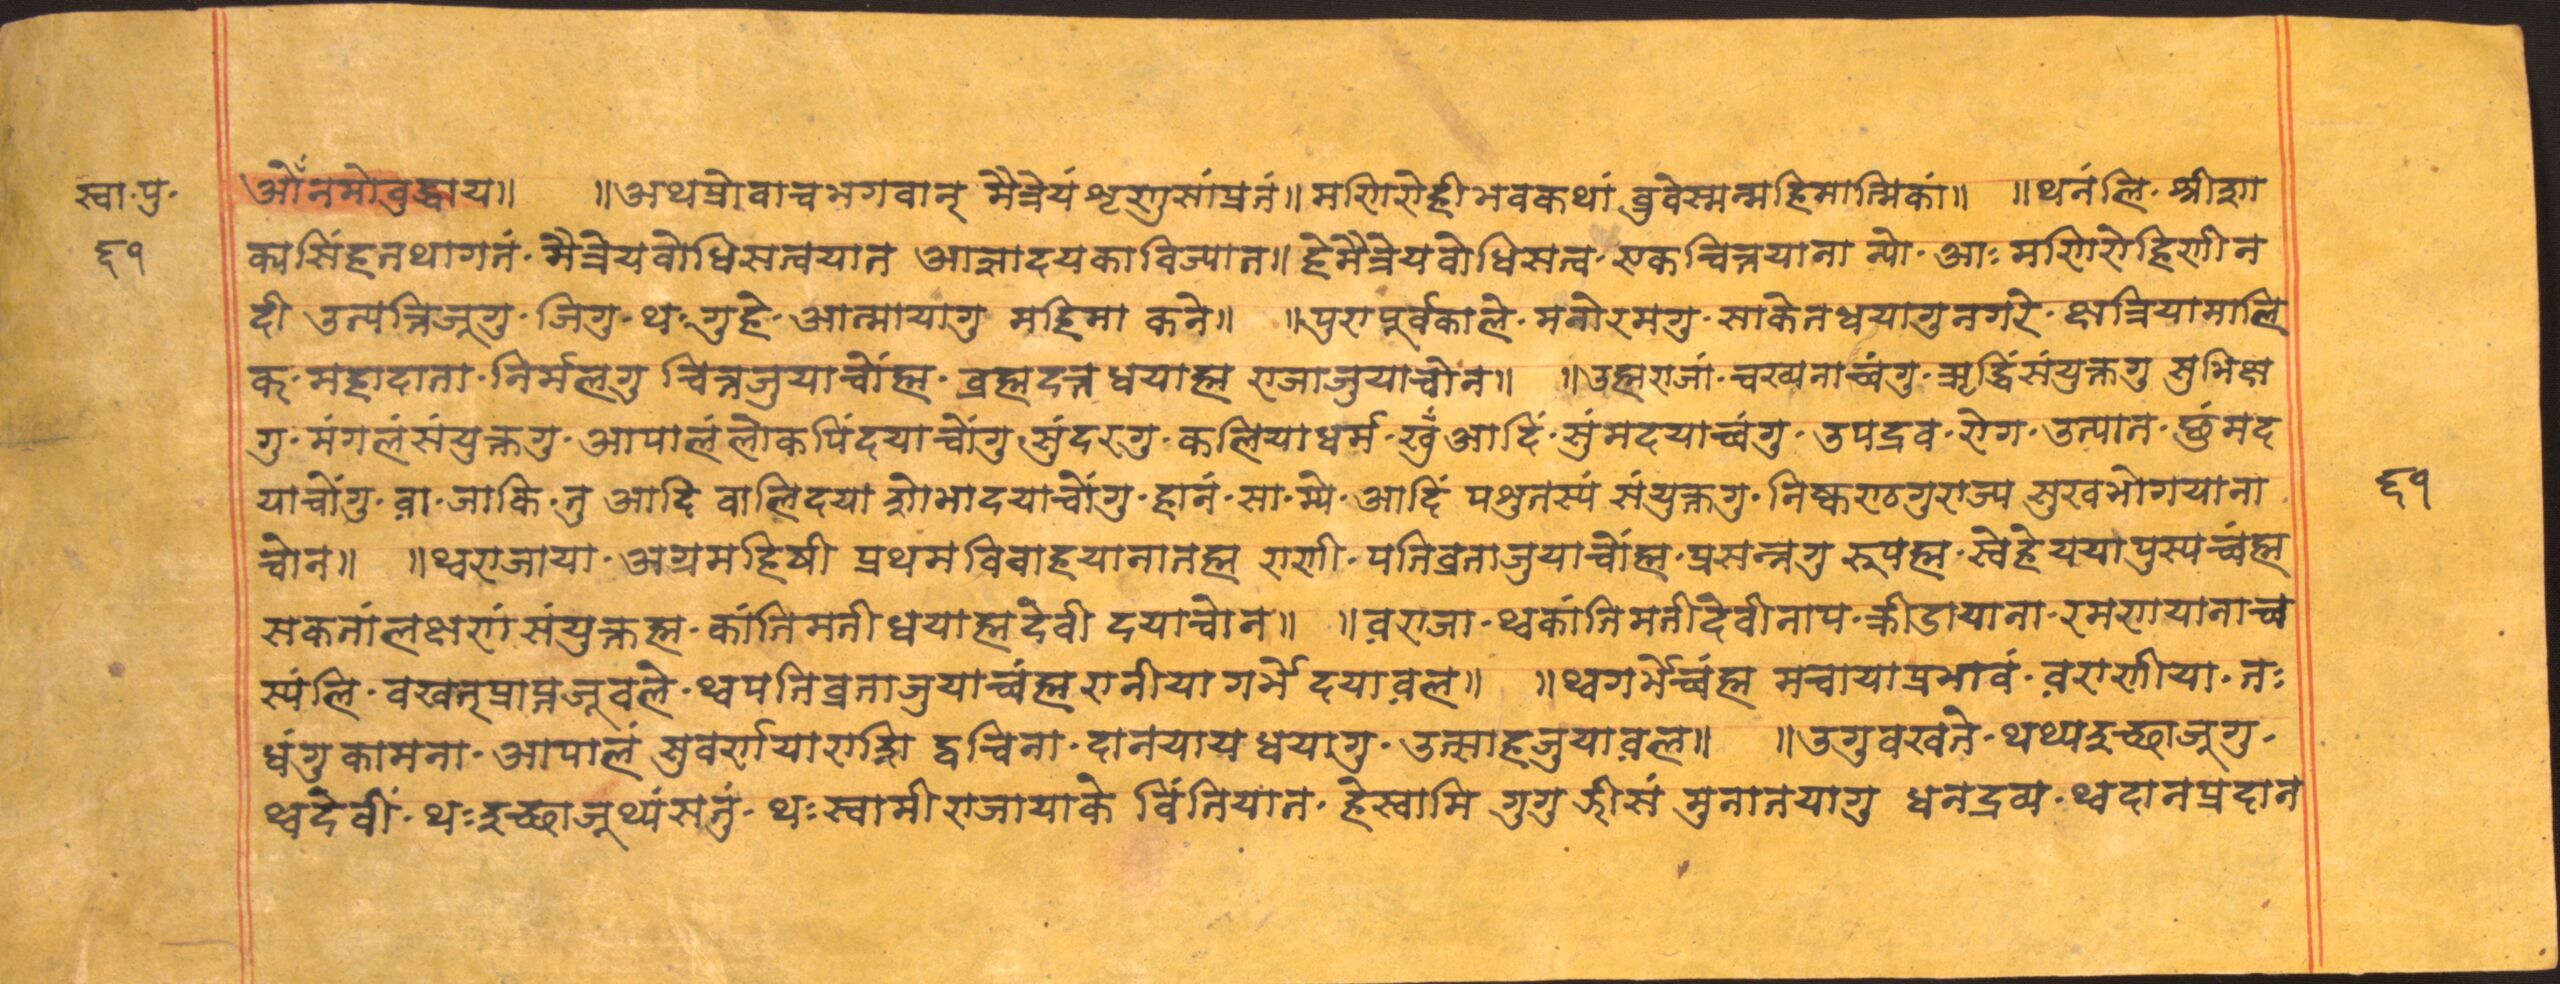 स्वा·पु·
६१
ओँ नमो वुद्धाय॥ ॥अथप्रोवाचभगवान् मैत्रेयं शृणुसांप्रतं॥मणिरोहीभवकथां व्रुवेस्मन्महिमात्मिकां॥ ॥थनंलि·श्रीशा
क्यसिंहतथागतं·मैत्रेयवोधिसत्वयात आज्ञादयकाविज्यात॥हेमैत्रेयवोधिसत्व·एकचित्तयाना न्यो·आः मणिरोहिणीन
दी उत्पत्तिजूगु·जिगु·थःगुहे·आत्मायागु महिमा कने॥ ॥पुरापूर्वकाले·मनोरमगु·साकेतधयागुनगरे·क्षत्रियामालि
क·महादाता·निर्मलगु चित्तजुयाचोंह्म·व्रह्मदत्त धयाह्म राजाजुयाचोन॥ ॥उह्मराजां·चखनाच्वंगु·ऋद्धिंसंयुक्तगु सुभिक्ष
गु·मंगलंसंयुक्तगु·आपालंलोकपिंदयाचोंगु सुंदरगु·कलियाधर्म·खुँआदिं·सुंमदयाच्वंगु·उपद्रव·रोग·उत्पात·छुंमद
याचोंगु·वा·जाकि·तु आदि वालिदया शोभादयाचोंगु·हानं·सा·म्ये·आदिं पशुतस्यं संयुक्तगु·निष्कण्ठगुराज्य सुखभोगयाना
चोन॥ ॥थ्वराजाया·अग्रमहिषी प्रथमविवाहयानातह्म राणी·पतिव्रताजुयाचोंह्म·प्रसन्नगु रूपह्म·स्वेहेययापुस्यच्वंह्म
सकतांलक्षणं संयुक्तह्म·कांतिमती धयाह्मदेवी दयाचोन॥ ॥व़राजा·थ्वकांतिमतीदेवीनाप·क्रीडायाना·रमणयानाच्व
स्यंलि·वखत्प्राप्तजूवले·थ्वपतिव्रताजुयाच्वंह्मरानीया गर्भे दयाव़ल॥ ॥थ्वगर्भेच्वंह्म मचायाप्रभावं·व़राणीया·नः
धंगु कामना·आपालं सुवर्णया द्वचिना·दानयाय धयागु·उत्साहजुयाव़ल॥ ॥उगुवखते·थथ्यइच्छाजूगु·
थ्वदेवीं·थःइच्छाजूथ्यंसतुं·थःस्वामीराजायाके विंतियात·हेस्वामि गुगु जीसं मुनातयागु धनद्रव्य·थ्वदानप्रदान
६१